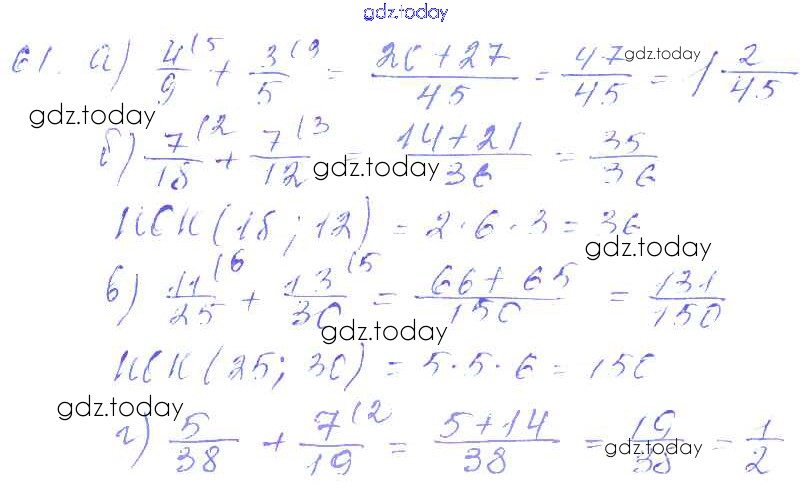 gdz.today
61. а) 4/9 (5 + 3/5 (9 = 20+27/45 = 47/45 = 1 2/45
gdz.today
gdz.today
б) 7/18 (2 + 7/12 (3 = 14+21/36 = 35/36
gdz.today
НОК (18; 12) = 2·6·3 = 36
gdz.today
в) 11/25 (6 + 13/30 (5 = 66+65/150 = 131/150
gdz.today
НОК (25; 30) = 5·5·6 = 150
gdz.today
г) 5/38 + 7/19 (2 = 5+14/38 = 19/38 = 1/2
gdz.today